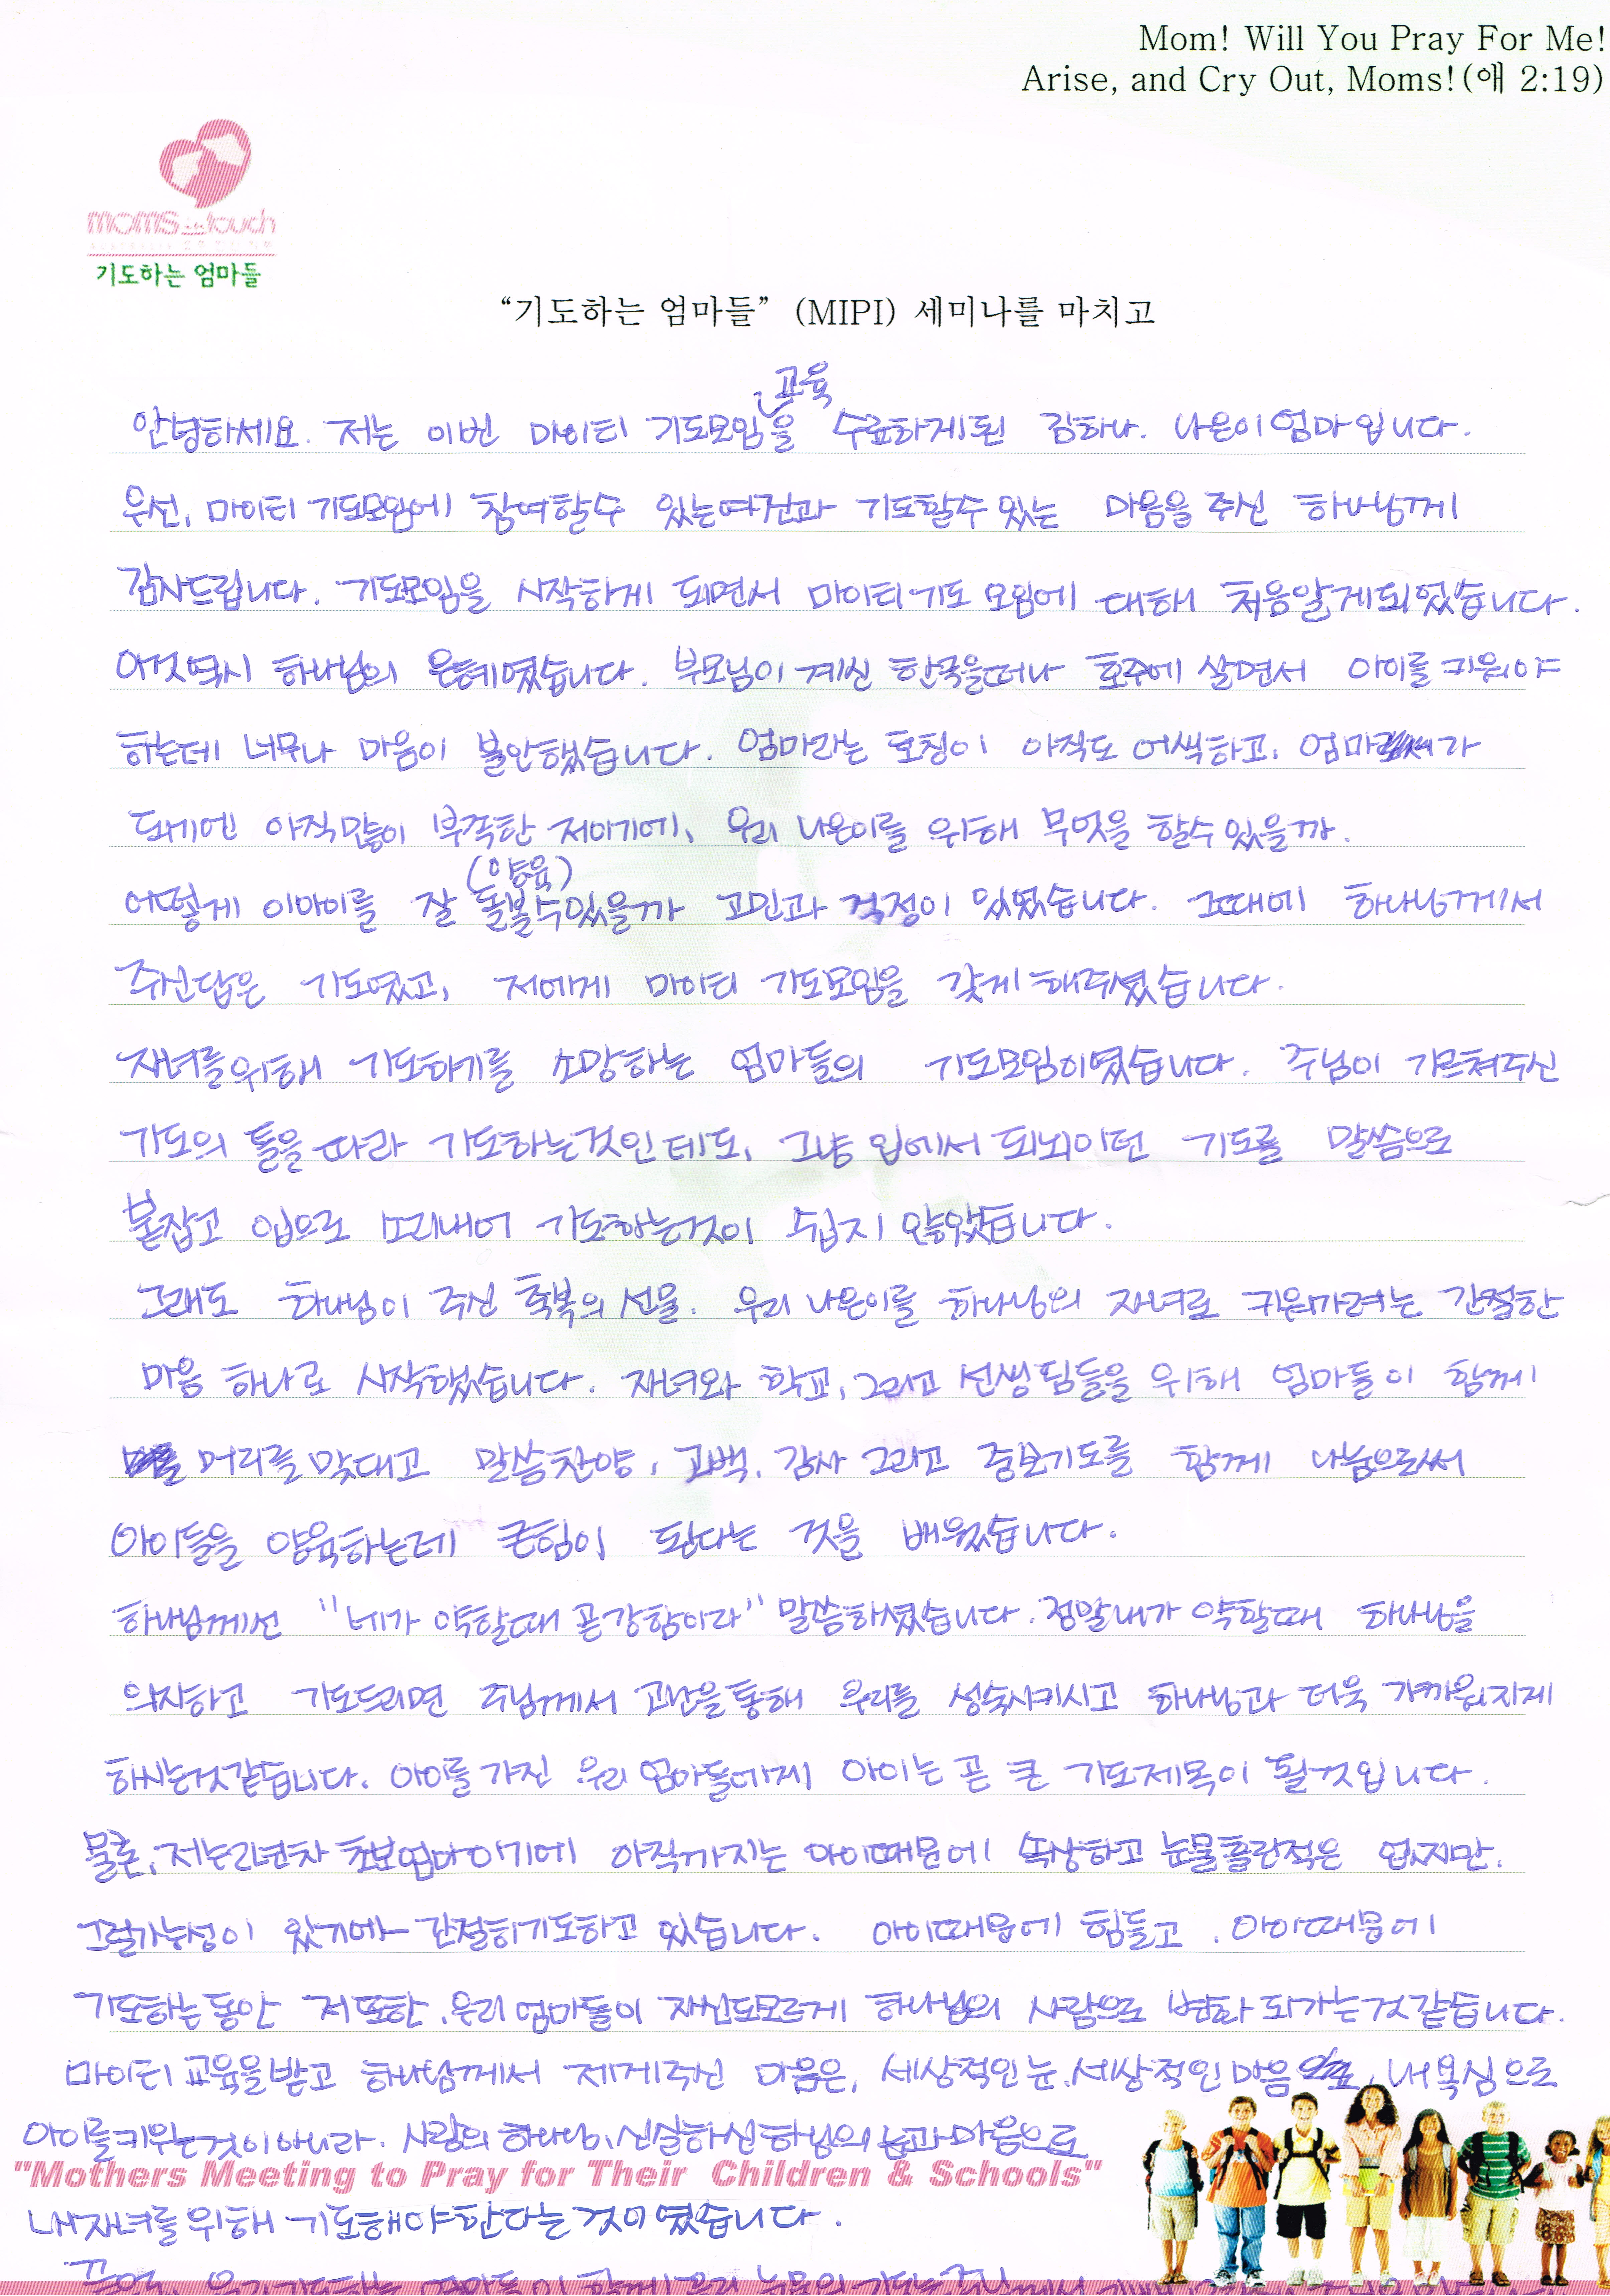 Mom! Will You Pray For Me!
Arise, and Cry Out, Moms!(애 2:19)
moms in touch
기도하는 엄마들
“기도하는 엄마들” (MIPI) 세미나를 마치고
교육
안녕하세요. 저는 이번 마이티 기도모임을 수료하게된 김하나. 나은이 엄마 입니다.
우선, 마이티 기도모임에 참여할수 있는여건과 기도할수 있는 마음을 주신 하나님께
감사드립니다. 기도모임을 시작하게 되면서 마이티기도 모임에 대해 처음알게되었습니다.
이것역시 하나님의 은혜였습니다. 부모님이 계신 한국을떠나 호주에 살면서 아이를 키워야
하는데 너무나 마음이 불안했습니다. 엄마라는 호칭이 아직도 어색하고, 엄마가
되기엔 아직많이 부족한 저이기에, 우리 나은이를 위해 무엇을 할수 있을까.
(양육)
어떻게 이아이를 잘 돌볼수있을까 고민과 걱정이 있었습니다. 그때에 하나님께서
주신답은 기도였고, 저에게 마이티 기도모임을 갖게 해주셨습니다.
자녀를위해 기도하기를 소망하는 엄마들의 기도모임이였습니다. 주님이 가르쳐주신
기도의 틀을 따라 기도하는것인데도, 그냥 입에서 되뇌이던 기도를 말씀으로
붙잡고 입으로 소리내어 기도하는것이 쉽지 않았습니다.
그래도 하나님이 주신 축복의 선물. 우리 나은이를 하나님의 자녀로 키워가려는 간절한
마음 하나로 시작했습니다. 자녀와 학교, 그리고 선생님들을 위해 엄마들이 함께
머리를 맞대고 말씀찬양, 고백, 감사 그리고 중보기도를 함께 나눔으로써
아이들을 양육하는데 큰힘이 된다는 것을 배웠습니다.
하나님께선 "네가 약할때 곧 강함이라" 말씀하셨습니다. 정말내가 약할때 하나님을
의지하고 기도드리면 주님께서 고난을통해 우리를 성숙시키시고 하나님과 더욱 가까워지게
하시는것같습니다. 아이를 가진 우리 엄마들에게 아이는 곧 큰 기도제목이 될것입니다.
물론, 저는2년차 초보엄마이기에 아직까지는 아이때문에 속상하고 눈물흘린적은 없지만.
그럴가능성이 있기에 간절히기도하고 있습니다. 아이때문에 힘들고, 아이때문에
기도하는동안 저또한, 우리 엄마들이 자신도모르게 하나님의 사람으로 변화 되가는것같습니다.
마이티 교육을받고 하나님께서 제게주신 마음은, 세상적인눈, 세상적인마음, 내 욕심으로
아이를키우는것이아니라. 사랑의 하나님, 신실하신하님의 눈과마음으로
"Mothers Meeting to Pray for Their Children & Schools"
내자녀를 위해 기도해야한다는 것이였습니다.
끝으로, 우리기도하는 엄마들이 함께